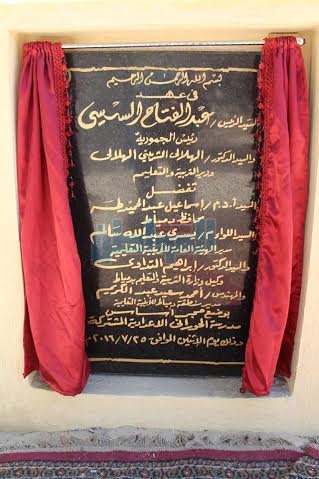 بسم الله الرحمن الرحيم
فى عهد
السيد الرئيس / عبد الفتاح السيسى
رئيس الجمهورية
والسيد الدكتور / الهلالى الشربينى الهلالى
وزير التربية والتعليم
تفضل
السيد أ.د.م / اسماعيل عبد الحميد طه
محافظ دمياط
السيد اللواء م / يسرى عبد الله سالم
مدير الهيئة العامة للأبنية التعليمية
والسيد الدكتور / إبراهيم التداوى
وكيل وزارة التربية والتعليم بدمياط
والمهندس / أحمد سعيد عبد الكريم
مدير منطقة دمياط للأبنية التعليمية
بوضع حجر اساس
مدرسة الحورانى الاعدادية المشتركة
وذلك يوم الإثنين الموافق ٢٥ / ٧ / ٢٠١٦ م